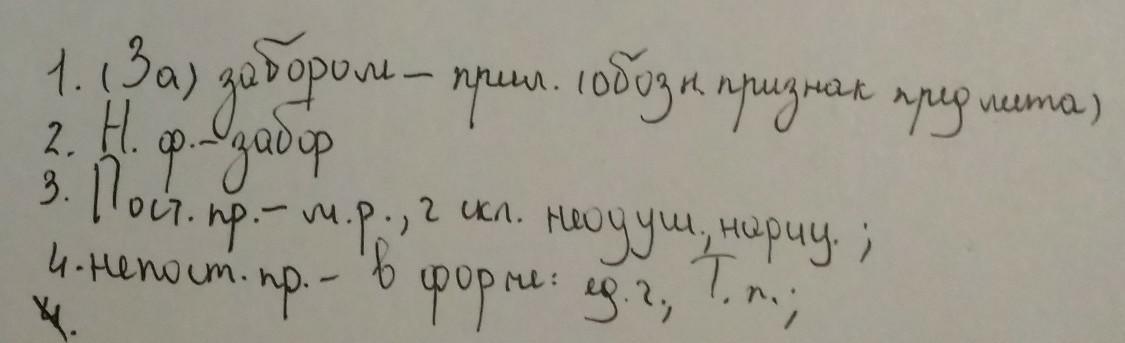 1. (За) забором – прил. (обозн. признак предмета)
2. Н. ф. – забор
3. Пост. пр. – м.р., 2 скл. неодуш., нариц.;
4. непост. пр. – в форме: ед. ч., Т. п.;
4.